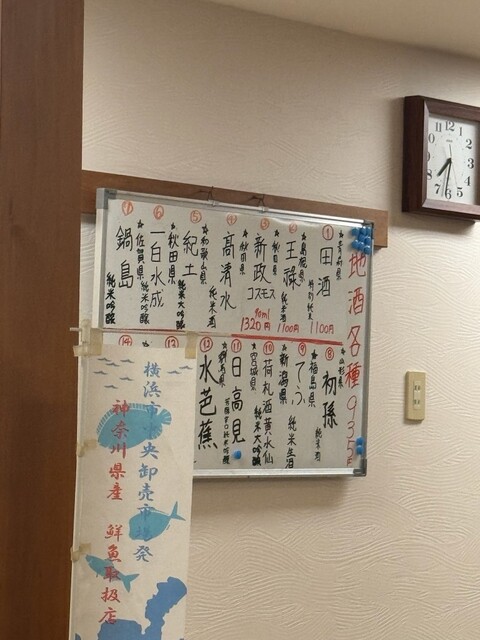 地酒各種935円
① 青森県
田酒
特別純米
1100円
② 島根県
王祿
純米酒
1100円
③ 秋田県
新政
コスモス
90ml
1320円
④
高清水
純米酒
⑤ 和歌山県
紀土
純米大吟醸
⑥ 秋田県
一白水成
純米吟醸
⑦ 佐賀県
鍋島
純米吟醸
⑧ 山形県
初孫
純米酒
⑨ 福島県
てふ
純米生酒
⑩ 新潟県
荷札酒黄水仙
純米大吟醸
⑪ 宮城県
日高見
純米吟醸
⑫ 群馬県
水芭蕉
⑬
⑭
横浜市中央卸売市場発
神奈川県産 鮮魚取扱店
12
1
2
3
4
5
6
7
8
9
10
11